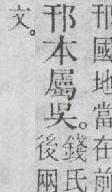 邗國地當在前
文。
邗本屬吳。
錢氏
後兩